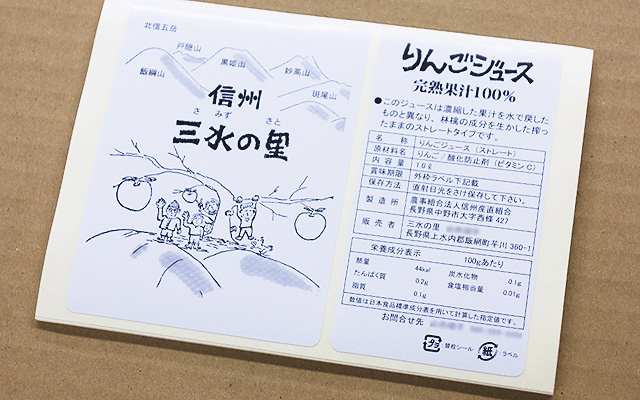 北信五岳
戸隠山
黒姫山
妙高山
飯綱山
斑尾山
信州
さみず さと
三水の里
りんごジュース
完熟果汁100%
●このジュースは濃縮した果汁を水で戻した
ものと異なり、林檎の成分を生かした搾っ
たままのストレートタイプです。
名称 りんごジュース（ストレート）
原材料名 りんご/酸化防止剤（ビタミンC）
内容量 1.0ℓ
賞味期限 外枠ラベル下記載
保存方法 直射日光をさけ保存して下さい。
製造所 農事組合法人信州産直組合
長野県中野市大字西條 427
販売者 三水の里
長野県上水内郡飯綱町芋川 360-1
栄養成分表示 100gあたり
熱量 44kal 炭水化物 0.1g
たんぱく質 0.2g 食塩相当量 0.01g
脂質 0.1g
数値は日本食品標準成分表を用いて計算した推定値です。
お問合せ先
プラ 替栓シール 紙 ラベル